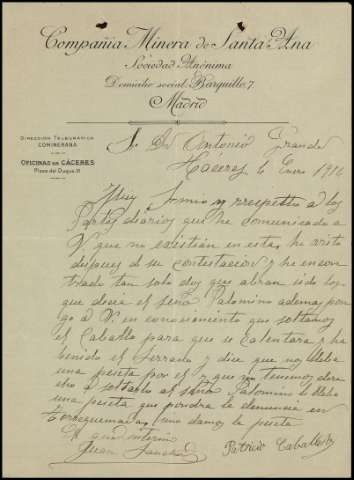 Compañia Minera de Santa Ana
Sociedad Anónima
Domicilio social, Barquillo, 7.
Madrid
DIRECCIÓN TELEGRÁFICA
COMINERANA
OFICINAS EN CÁCERES
Plaza del Duque, 11
S. Dn Antonio Grande
Cáceres 6 Enero 1914
Muy Sr mio y respetto a los
Partes diarios que he comunicado a
V que no existian en esta, he visto
despues d su contestacion y he encon
trado tan solo dos que abran sido los
que dicera el señor Palomino ademas pon
go a V. en conocimiento que soltamos
el Caballo para que se calentara y ha
benido el Serrado y dice que nos lleba
una peseta por el y que no tenemos dere
cho a soltarlo al señor Palomino le lleba
una peseta que pondra la denuncia en
Torrequemada, si no damos la peseta
El guarda interino
Juan Sanchez
Patricio Caballero